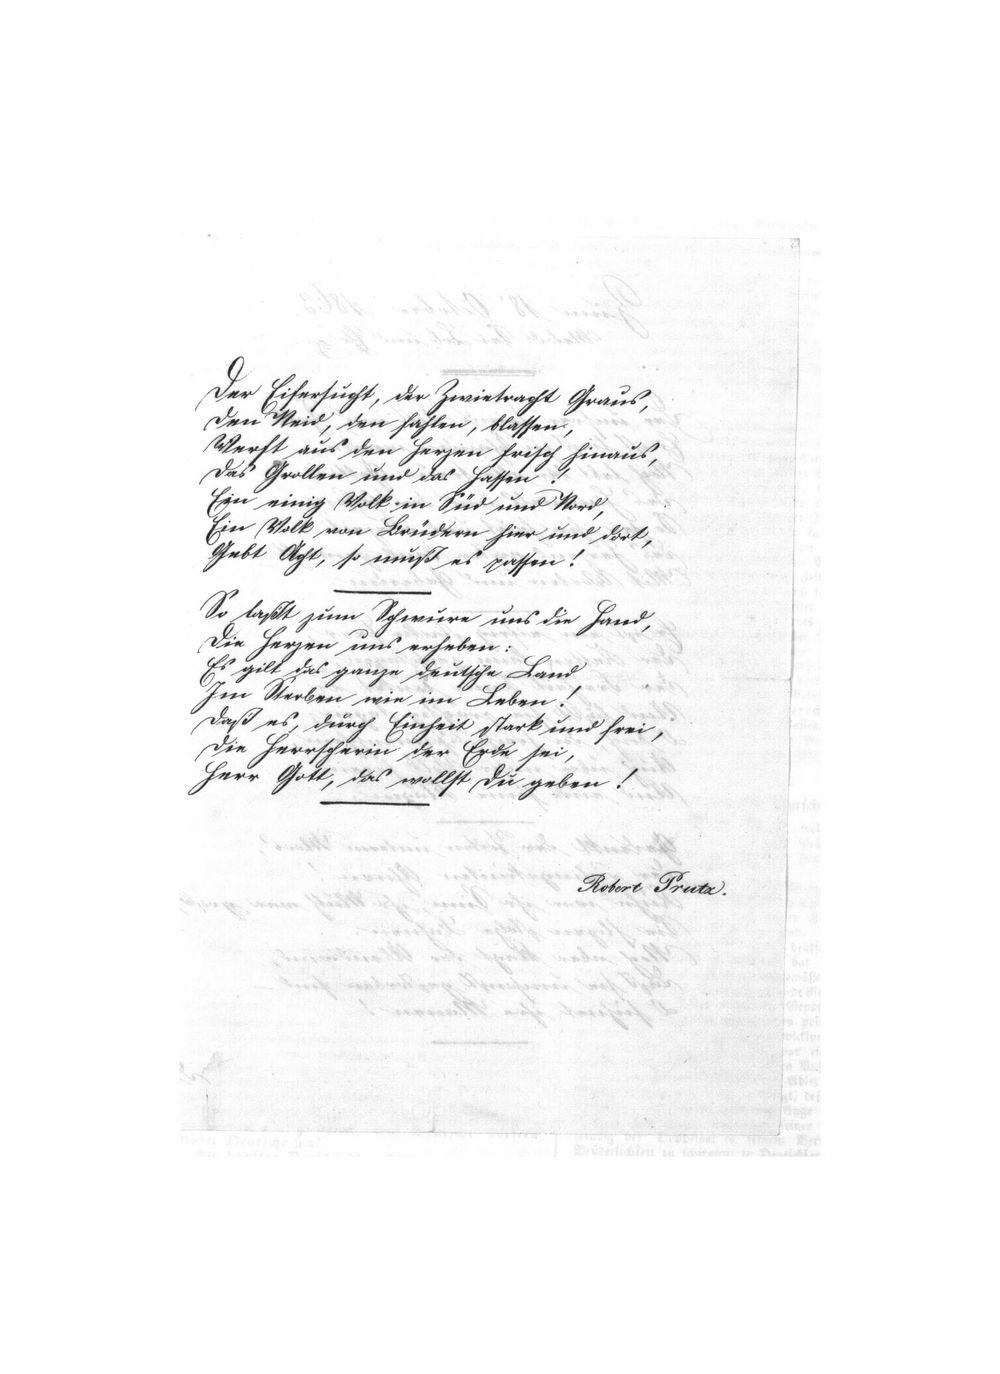 Der Eifersucht, der Zwietracht Graus,
Den Neid, den fahlen, blassen,
Werft aus den Herzen frisch hinaus,
Das Grollen und das Hassen!
Ein einig Volk in Süd und Nord,
Ein Volk von Brüdern hier und dort,
Gebt Acht, so muß es passen!
So laßt zum Schwure uns die Hand,
Die Herzen uns erheben:
Es gilt das ganze deutsche Land
Im Sterben wie im Leben!
Daß es, durch Einheit stark und frei,
Die Herrscherin der Erde sei,
Herr Gott, das wollst Du geben!
Robert Prutz.